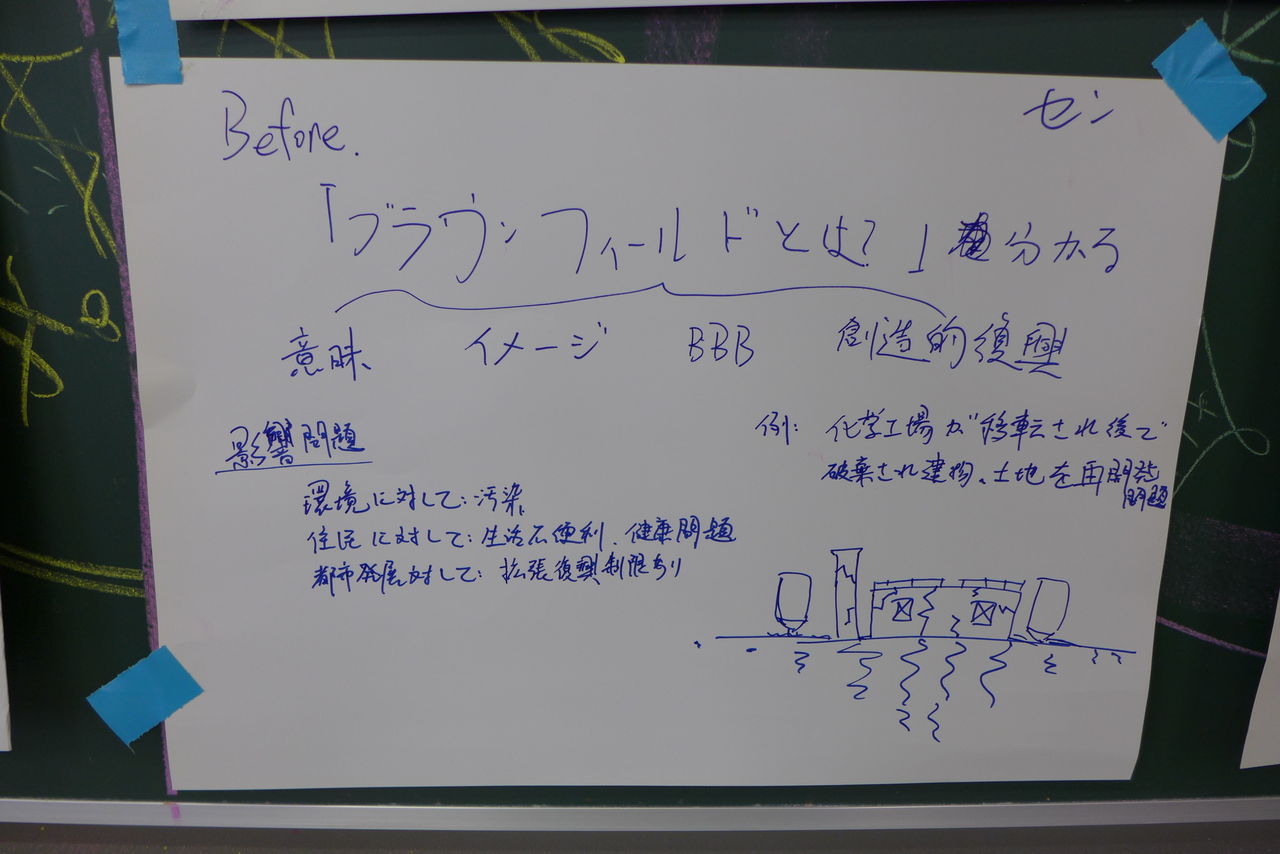 Before.
セン
「ブラウンフィールドとは?」を分かる
意味、 イメージ BBB 創造的復興
影響問題
環境に対して:汚染、
住民に対して:生活不便利、健康問題
都市発展対して:拡張復興制限あり
例:化学工場が移転され後で
破棄され建物、土地を再開発
問題